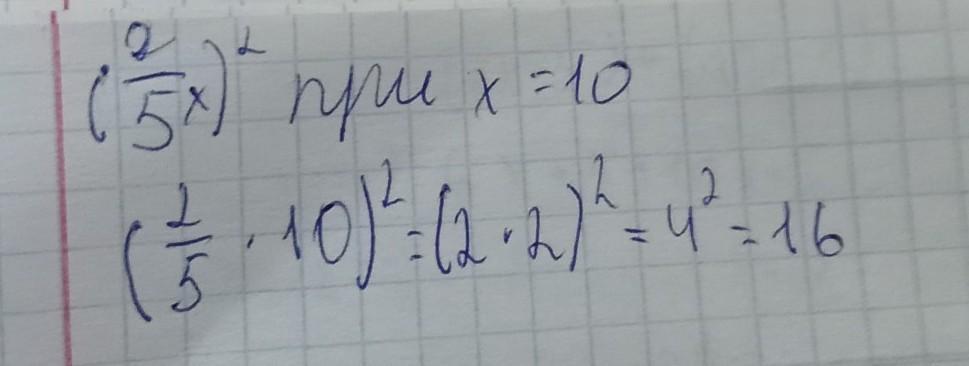 (2/5 x)² при x = 10
(2/5 · 10)² = (2 · 2)² = 4² = 16